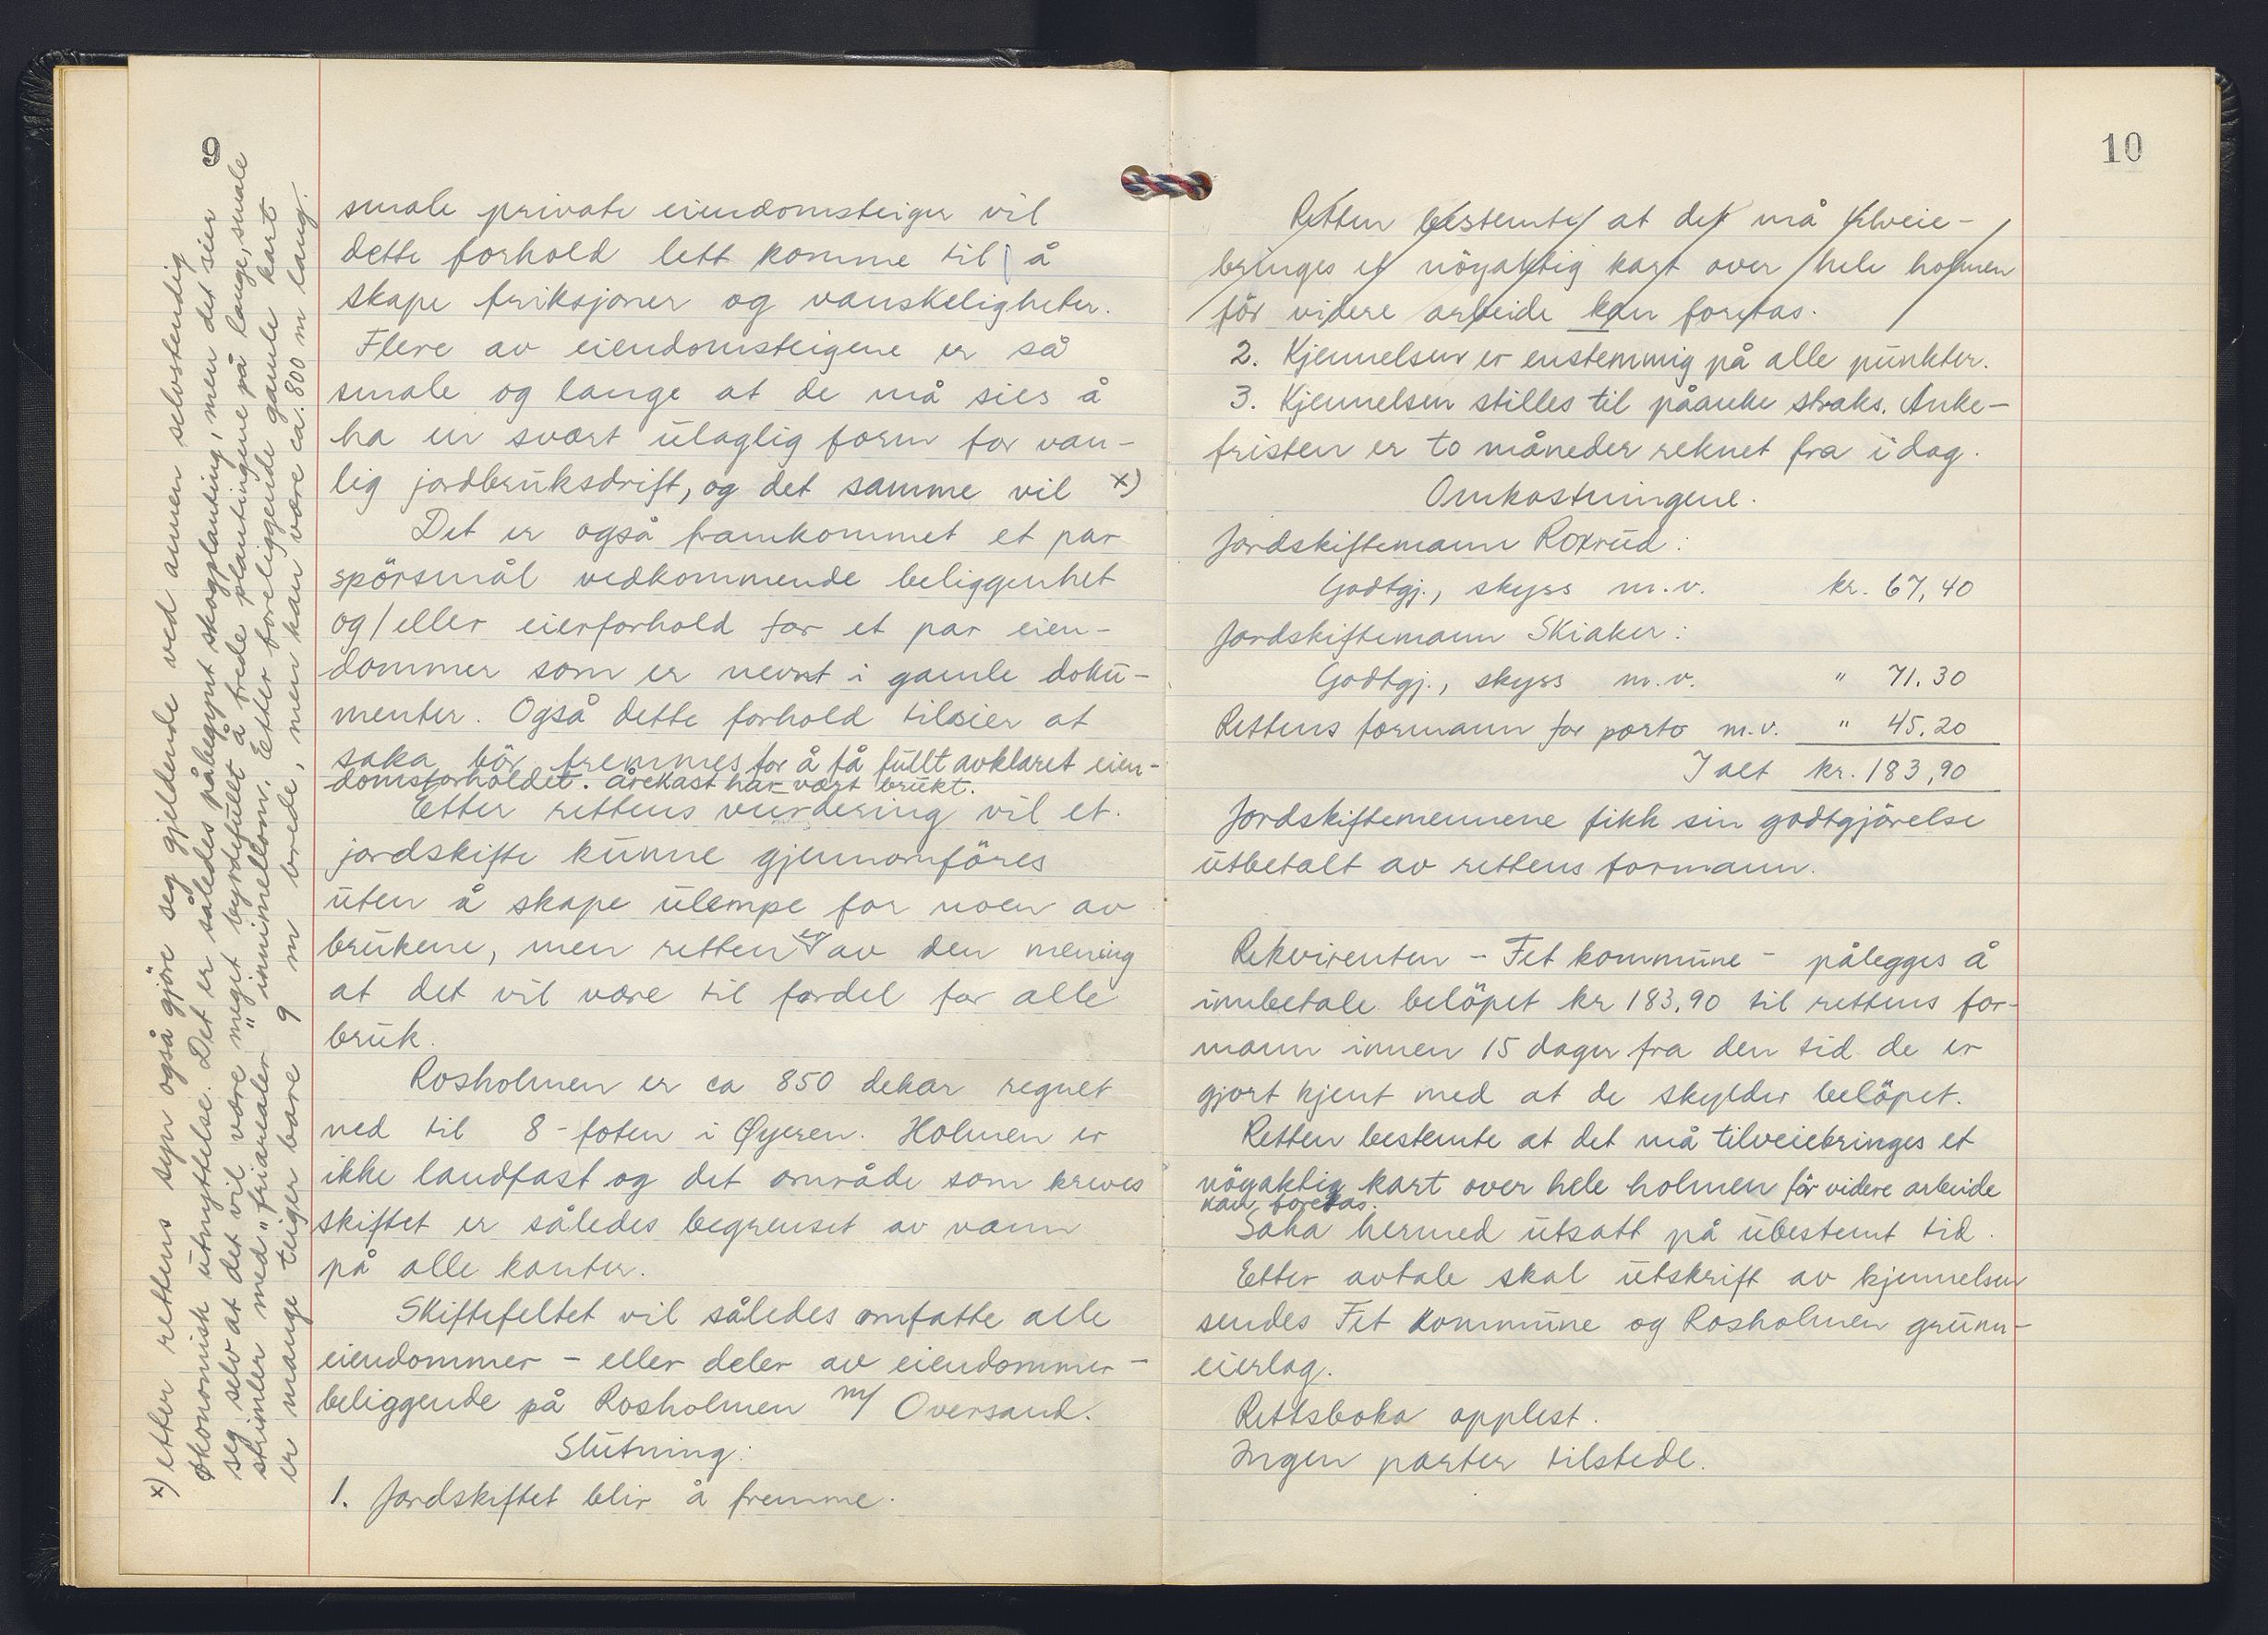 9
smale private eiendomsteiger vil
dette forhold lett komme til å
skape friksjoner og vanskeligheter.
Flere av eiendomsteigene er så
smale og lange at de må sies å
ha en svært ulaglig form for van-
lig jordbruksdrift, og det samme vil x)
Det er også framkommet et par
spörsmål vedkommende beliggenhet
og/eller eierforhold for et par eien-
dommer som er nevnt i gamle doku-
menter. Også dette forhold tilsier at
saka bör fremmes for å få fullt avklaret eien-
domsforholdet. Årekast har vært brukt.
Etter rettens vurdering vil et
jordskifte kunne gjennomföres
uten å skape ulempe for noen av
brukene, men retten er av den mening
at det vil være til fordel for alle
bruk.
Rosholmen er ca 850 dekar regnet
ned til 8-foten i Øyeren. Holmen er
ikke landfast og det område som kreves
skiftet er således begrenset av vann
på alle kanter.
Skiftefeltet vil således omfatte alle
eiendommer - eller deler av eiendommer -
beliggende på Rosholmen m/ Oversand.
Slutning:
1. Jordskiftet blir å fremme.
x) etter rettens syn også gjöre seg gjeldende ved annen selvstendig
økonomisk utnyttelse. Det er således påbegynt skogplanting, men det sier
seg selv at det vil være meget byrdefullt å frede plantingene på lange, smale
strimler med "friarealer" innimellom. Etter foreliggende gamle kart
er mange teiger bare 9 m brede, men kan være ca. 800 m lang.
10
Retten bestemte at det må tilveie-
bringes et nöyaktig kart over hele holmen
för videre arbeide kan foretas.
2. Kjennelsen er enstemmig på alle punkter.
3. Kjennelsen stilles til påanke straks. Anke-
fristen er to måneder reknet fra idag.
Omkostningene.
Jordskiftemann Roxrud:
Godtgj., skyss m.v. kr. 67,40
Jordskiftemann Skiaker:
Godtgj., skyss m.v. " 71.30
Rettens formann for porto m.v. " 45.20
I alt kr. 183,90
Jordskiftemennene fikk sin godtgjörelse
utbetalt av rettens formann.
Rekvirenten - Fet kommune - pålegges å
innbetale belöpet kr 183.90 til rettens for-
mann innen 15 dager fra den tid de er
gjort kjent med at de skylder belöpet.
Retten bestemte at det må tilveiebringes et
nöyaktig kart over hele holmen för videre arbeide
kan foretas.
Saka hermed utsatt på ubestemt tid.
Etter avtale skal utskrift av kjennelsen
sendes Fet kommune og Rosholmen grunn-
eierlag.
Rettsboka opplest.
Ingen parter tilstede.